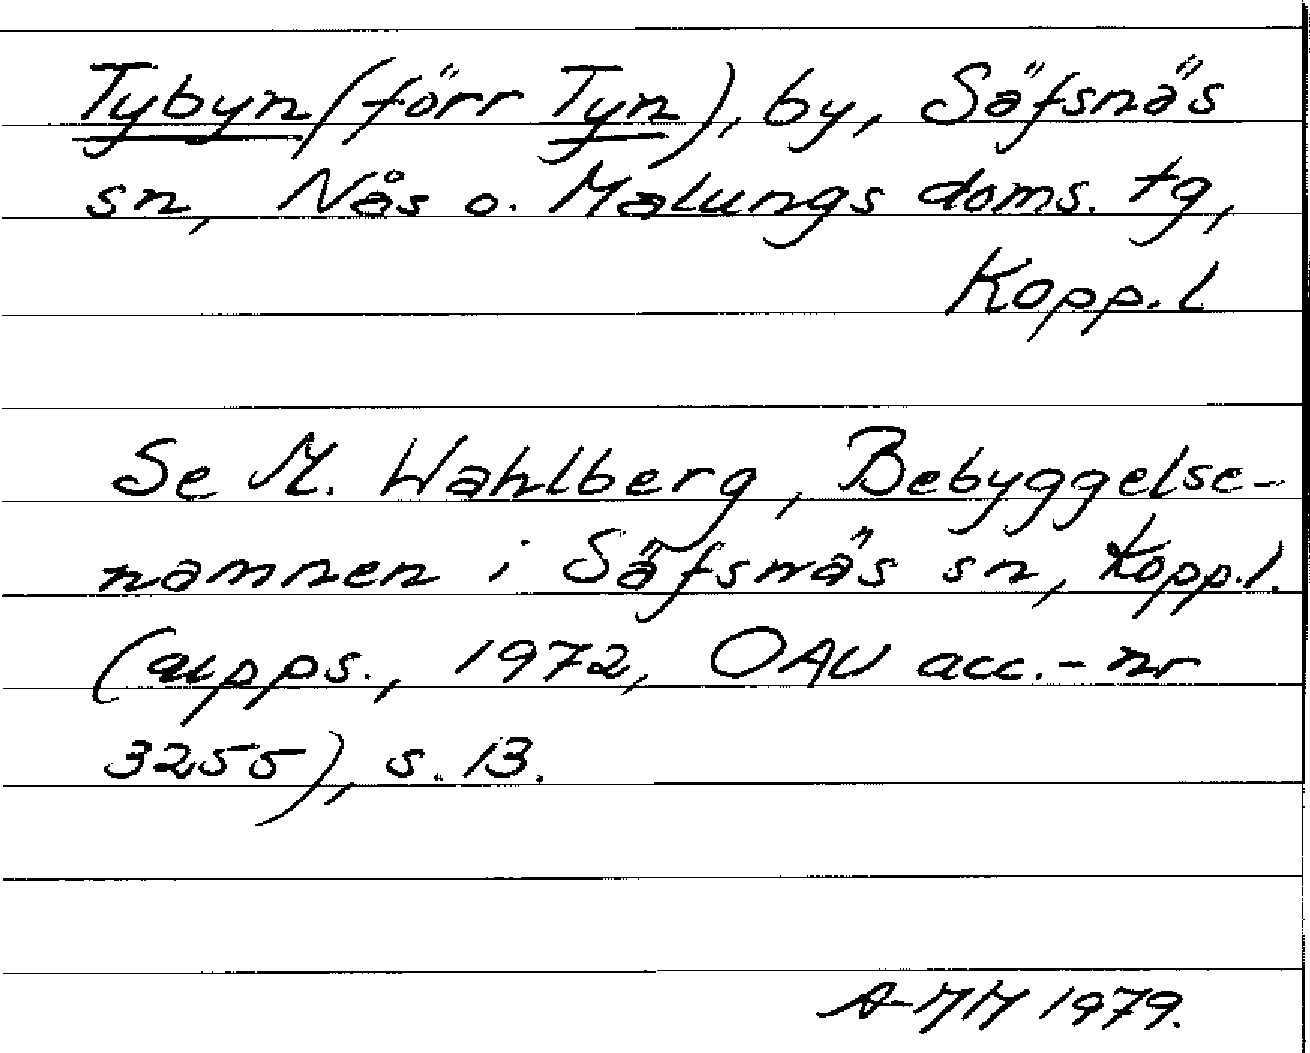 Tybyn (förr Tyn), by, Säfsnäs
sn, Nås o. Malungs doms. tg,
Kopp. l
Se M. Wahlberg, Bebyggelse-
namnen i Säfsnäs sn, Kopp.l.
(upps., 1972, OAU acc.-nr
3255), s. 13.
A-MM 1979.